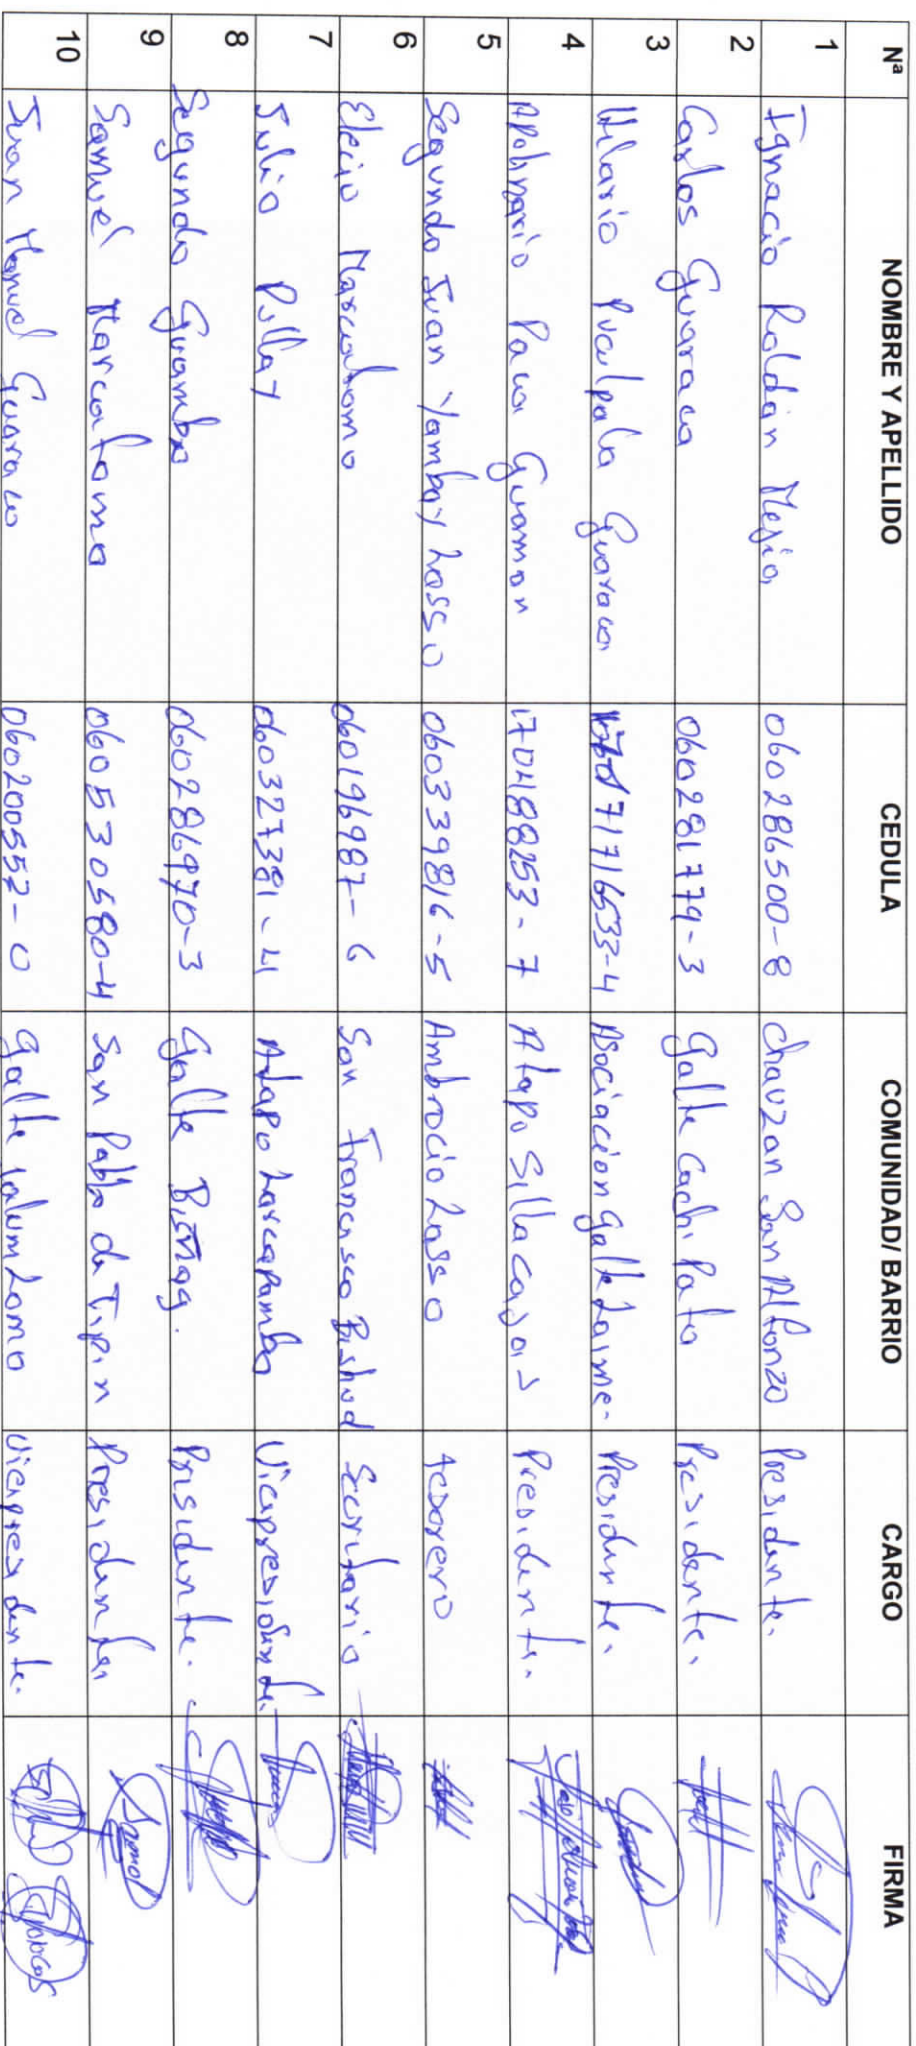 Nª NOMBRE Y APELLIDO CEDULA COMUNIDAD/ BARRIO CARGO FIRMA
1 Ignacio Roldán Mejia 060286500-8 Chauzan San Alfonzo Presidente.
2 Carlos Guaraca 060281779-3 Galte Cachipata Presidente.
3 Hilario Puculpala Guaraca 171716533-4 Asociacion galte Laime. Presidente.
4 Apolinario Paca Guaman 170488253-7 Atapo Silla Cajas Presidente.
5 Segundo Juan Yambay Lasso 060339816-5 Ambrocio Lasso tesorero
6 Elecio Marcatoma 060196987-6 San Francisco Bishud Secretario
7 Julio Pillay 060327381-4 Atapo Larcapamba Vicepresidente.
8 Segundo Guamba 060286970-3 Galte Biñag. Presidente.
9 Samuel Marcatoma 060530580-4 San Pablo de Tipin Presidente
10 Juan Manuel Guaraca 060200552-0 galte Presidente.